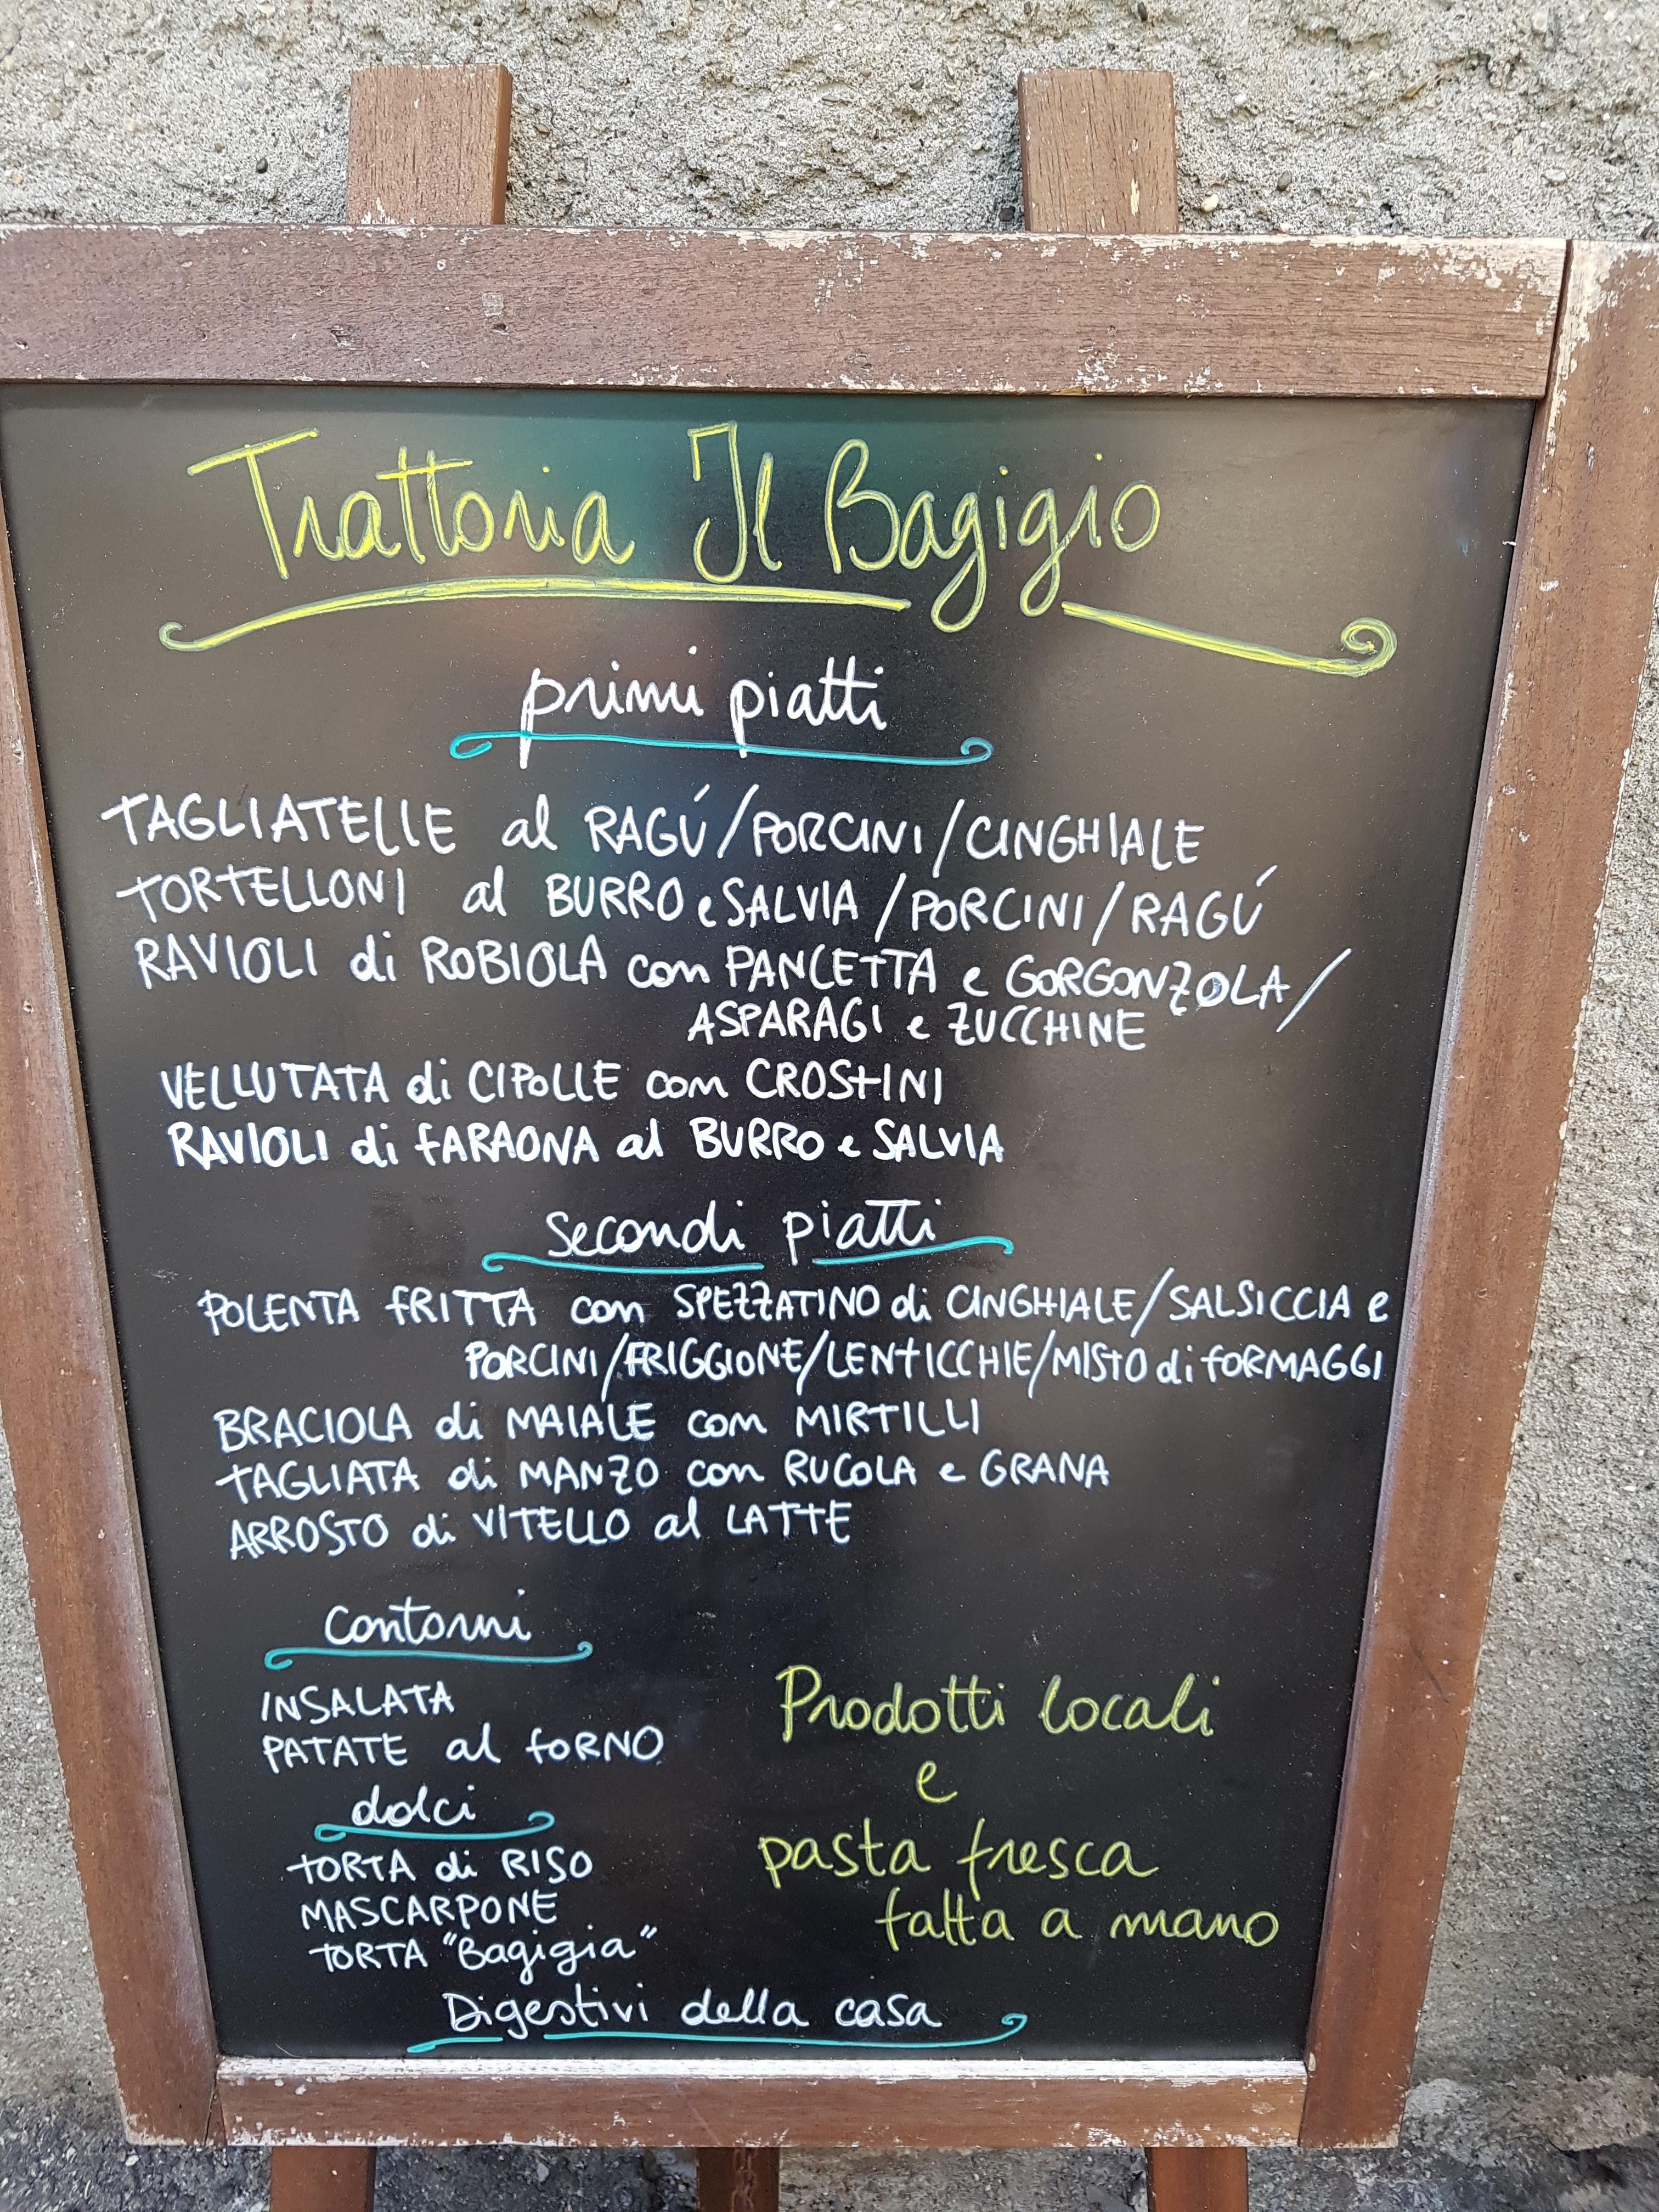 Trattoria Il Bagigio
primi piatti
TAGLIATELLE al RAGÚ/PORCINI/CINGHIALE
TORTELLONI al BURRO e SALVIA/PORCINI/RAGÚ
RAVIOLI di ROBIOLA con PANCETTA e GORGONZOLA/
ASPARAGI e ZUCCHINE
VELLUTATA di CIPOLLE con CROSTINI
RAVIOLI di FARAONA al BURRO e SALVIA
secondi piatti
POLENTA FRITTA con SPEZZATINO di CINGHIALE/SALSICCIA e
PORCINI/FRIGGIONE/LENTICCHIE/MISTO di FORMAGGI
BRACIOLA di MAIALE con MIRTILLI
TAGLIATA di MANZO con RUCOLA e GRANA
ARROSTO di VITELLO al LATTE
contorni
INSALATA
PATATE al FORNO
dolci
TORTA di RISO
MASCARPONE
TORTA "Bagigia"
Prodotti locali
e
pasta fresca
fatta a mano
Digestivi della casa